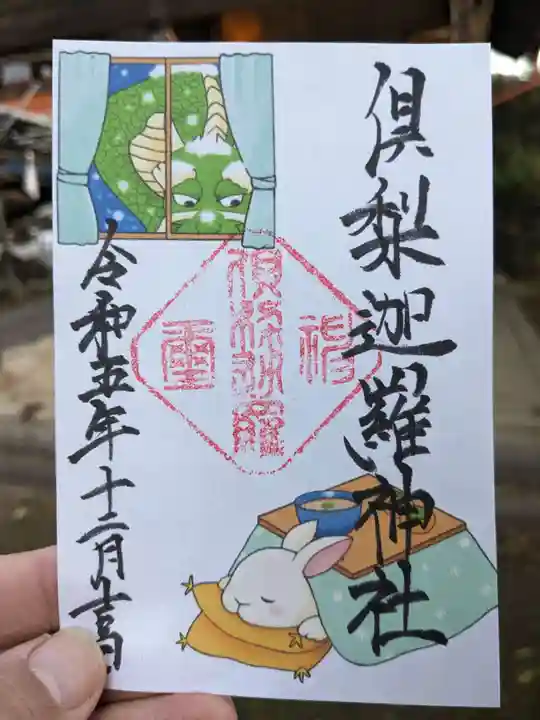 倶梨迦羅神社
倶梨迦羅
神
霊
令和五年十二月吉日